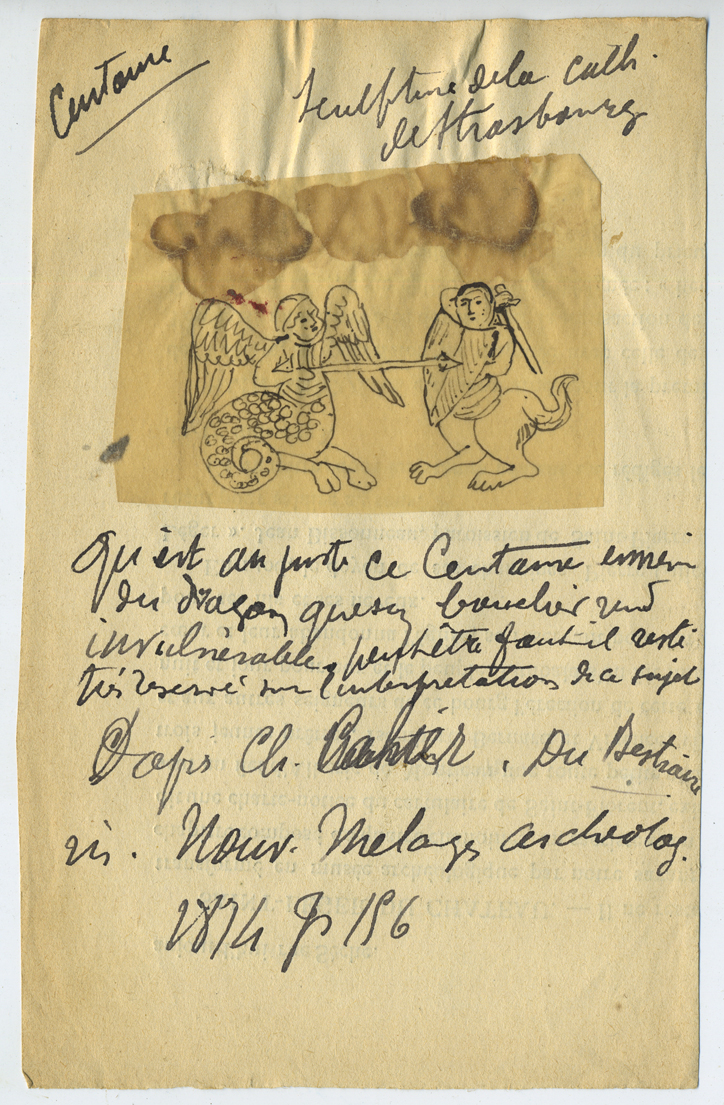 Centaure
Sculpture de la cath.
de Strasbourg
Qu'est au juste ce Centaure ennemi
du dragon que son bouclier rend
invulnérable, peut être faut-il resté
très réservé sur l'interpretation de ce sujet
Daprs Ch. Cahier, Du Bestiaire
in. Nouv. Melanges archeolog.
1874 p 156